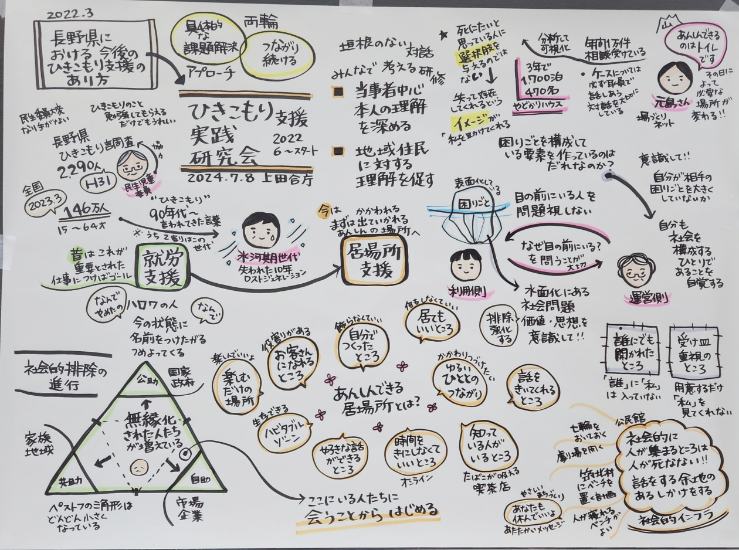 2022.3
長野県に
おける今後の
ひきこもり支援の
あり方
具体的
な
課題解決
両輪
つながり
続ける
アプローチ
ひきこもり支援
実践 2022
研究会 6～スタート
2024.7.8 上田合庁
ひきこもりのこと
勉強してもらえる
だけでもうれしい
長野県
ひきこもり調査
2290人
H31
協力
民生児童
委員
全国
2023.3
146万人
15～64才
"ひきこもり"
90年代～
言われてきた言葉
世代
氷河期世代
失われた10年
ロストジェネレーション
昔はこれが
重要とされた
仕事につけばゴール
就労
支援
なんで
やめたの
ハロワの人
なんで
今の状態に
名前をつけたがる
つめよってくる
垣根のない対話
みんなで考える研修
■当事者中心
本人の理解
を深める
■地域住民
に対する
理解を促す
今は
かかわる
まずは出ていかれる
あんしんの場所へ
居場所
支援
死にたいと
思っている人に
選択肢
を与えるのでは
なく
失って存在
してくれるという
イメージが
私を助けてくれる
分析して
可視化
3年で
1,700泊
470名
やどかりハウス
年間1万件
相談受けている
・ケースについては
必ず職員で
話しあう
対話を大切に
している
あんしんできる
のはトイレです
元島さん
その日に
よって
必要な
場所が
変わる!!
困りごとを構成して
いる要素を作っているのは
だれなのか?
意識して!!
自分が相手の
困りごとを大きく
していないか
表面化している
困りごと
目の前にいる人を
問題視しない
なぜ目の前にいる?
を問うことが
大切
自分も
社会を
構成する
ひとりで
あることを
自覚する
利用側
運営側
水面化にある
社会問題
価値・思想を
意識して!!
排除
強化する
誰にでも
開かれた
ところ
「誰」に「私」
は入っていない
受け皿
重視の
ところ
用意するだけ
「私」を
見てくれない
社会的排除の
進行
公助
国家
政府
無縁化
された人たち
が増えている
家族
地域
共助
自助
市場
企業
ペストフの三角形は
どんどん小さく
なっている
あんしんできる
居場所とは?
楽しんでいい
楽しむ
だけの
場所
役割がある
お客さん
になれる
ところ
飾らなくていい
自分で
つくった
ところ
何をしなくていい
居ても
いいところ
ゆるい
ひととの
つながり
話を
きいてくれる
ところ
生存できる
ハビタブル
ゾーン
好きな話
ができる
ところ
時間を
きにしなくて
いいところ
オンライン
知って
いる人が
いるところ
たばこが吸える
喫茶店
ここにいる人たちに
会うことからはじめる
公民館
七輪を
おいておく
劇場を開く
筑北村
にベンチを
置く計画
人が座れる
ベンチが
よい
やさしい
あなたも
休んでいいよ
あたたかいメッセージ
社会的に
人が集まるところは
人が死なない!!
話をする余地の
あるしかけをする
社会的インフラ